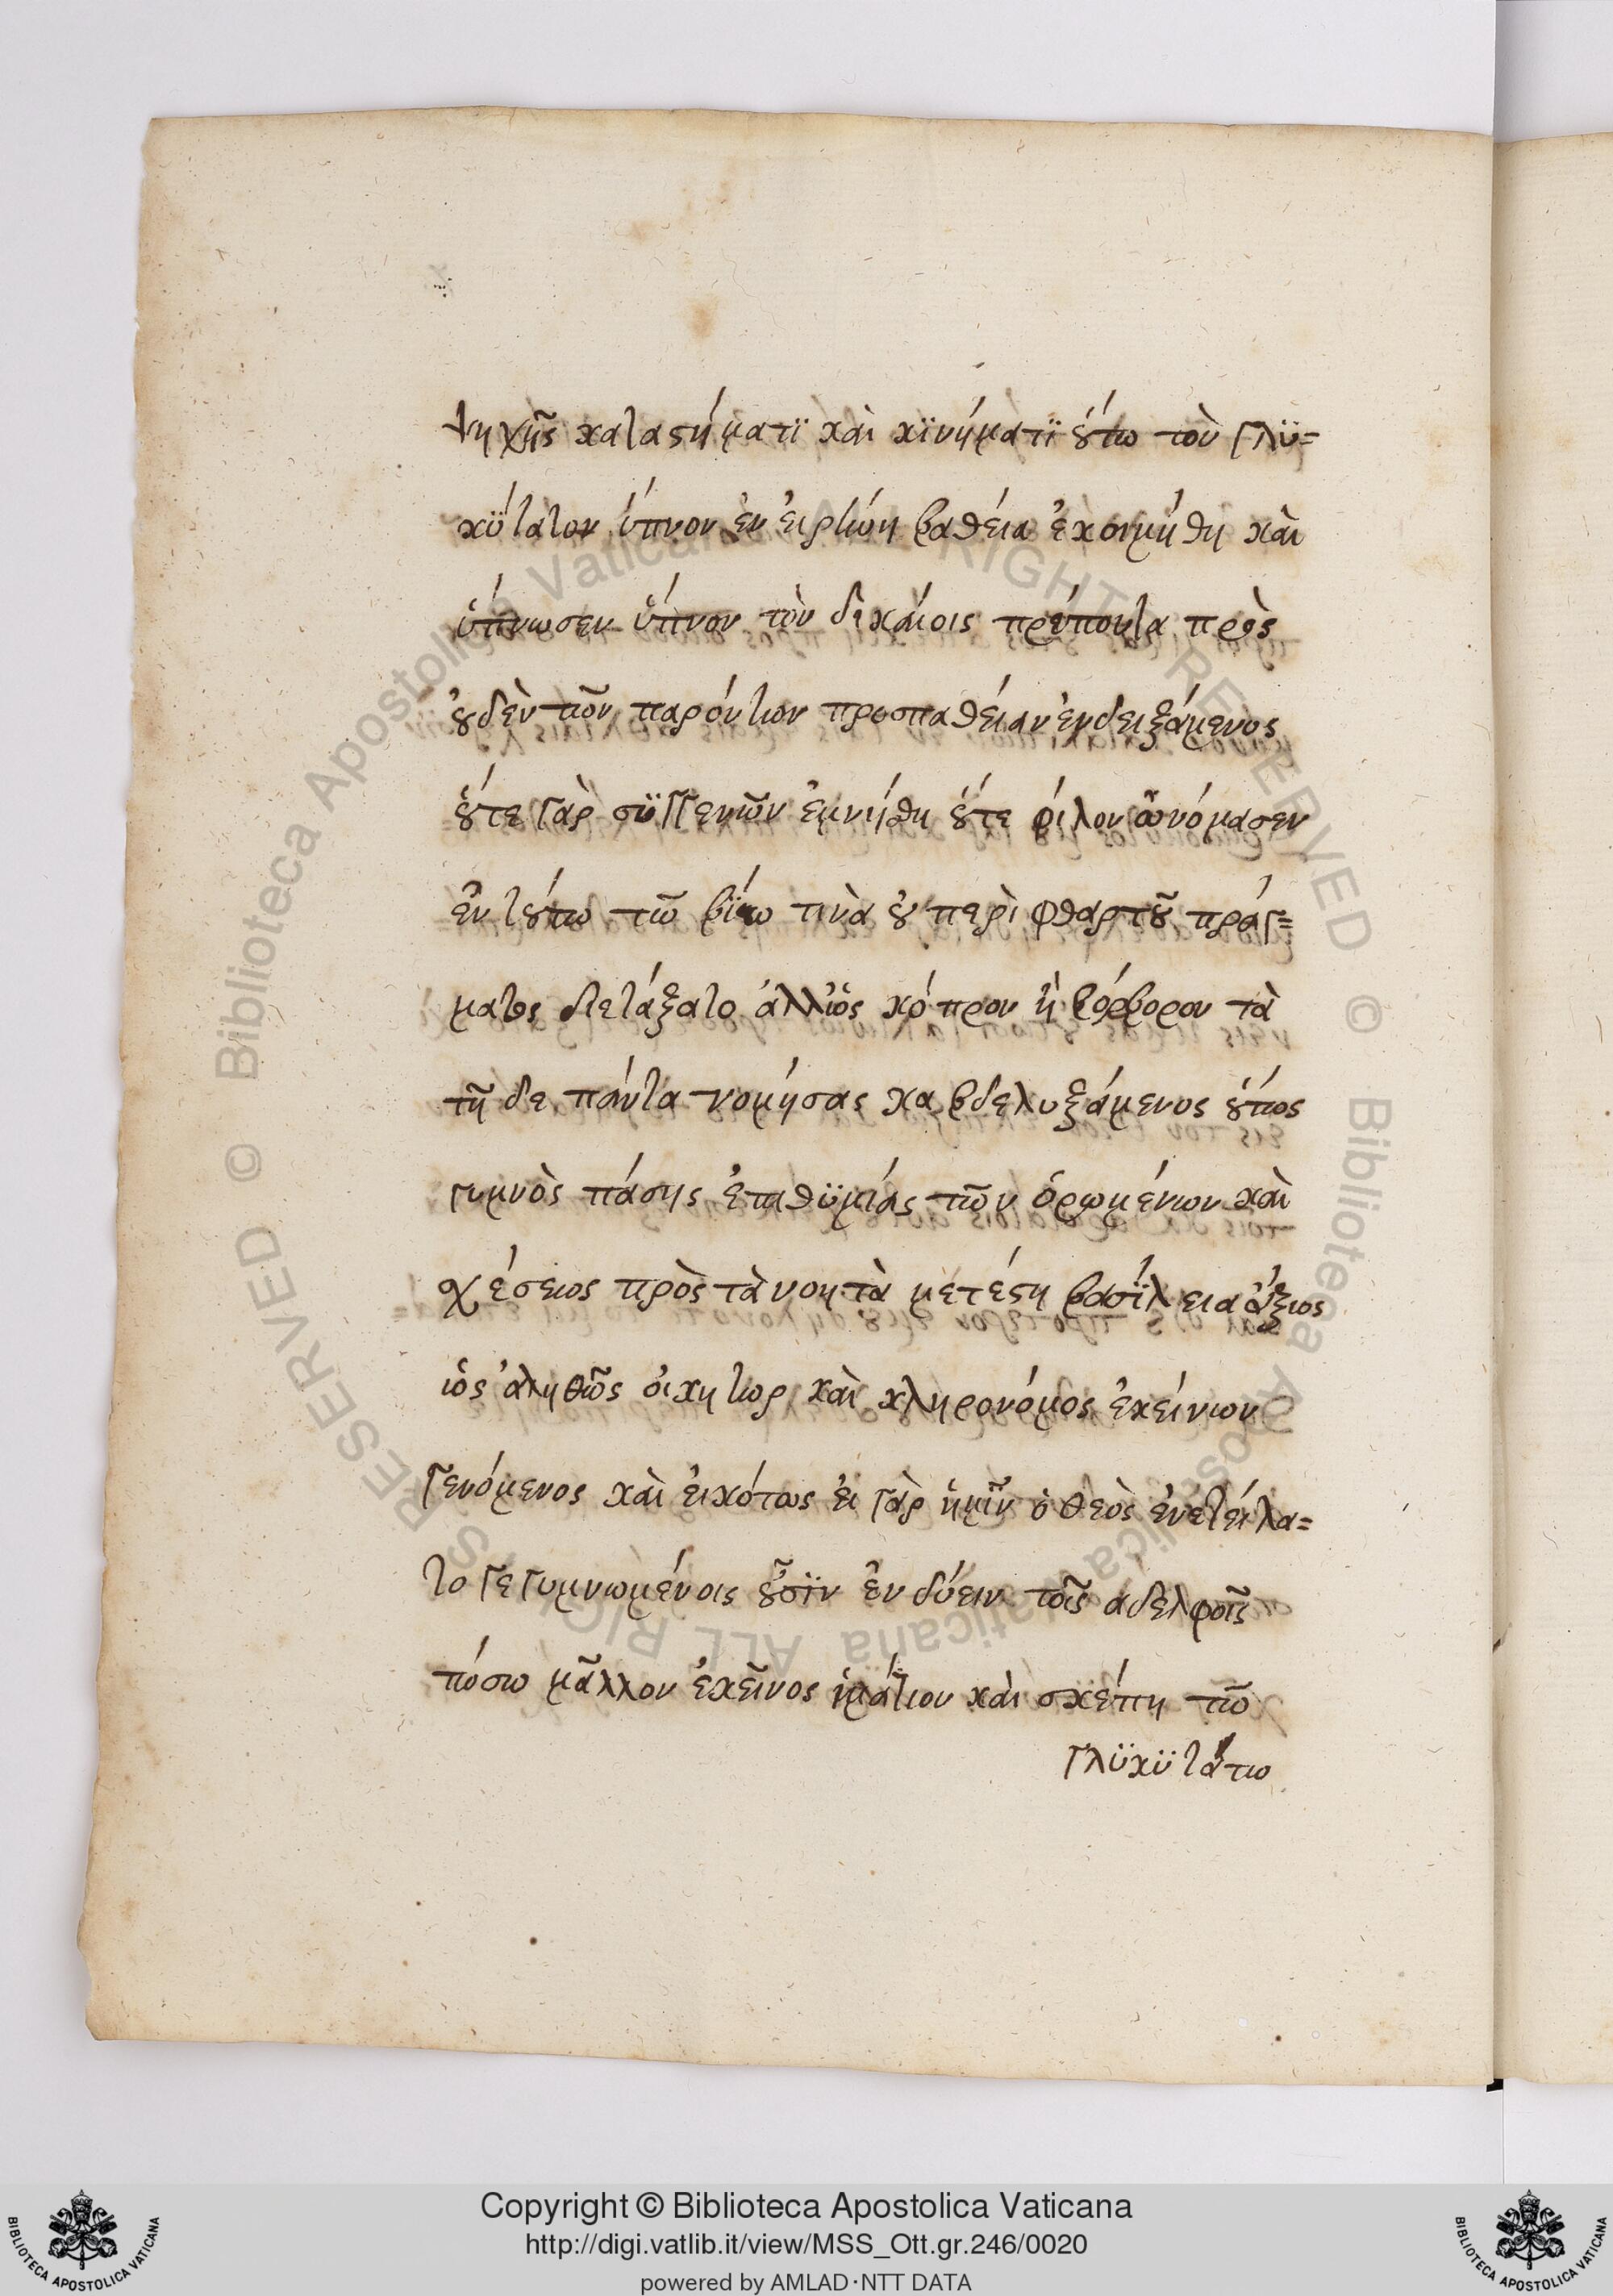 ψηχῆς καταστήματϊ καὶ κϊνήματϊ οὕτω τὸν γλϋ=
κΰτατον ὕπνον ἐν εἰρήνη βαθεία ἐκοιμήθη καὶ
ὕπνωσεν ὕπνον τὸν δικαίοις πρέποντα πρὸς
οὐδὲν τῶν παρόντων προσπαθείαν ἐνδειξάμενος
οὔτε γὰρ σϋγγενῶν ἐμνήθη οὔτε φίλον ὠνόμασεν
ἐν τούτω τῶ βίω τινὰ οὐ περὶ φθαρτοῦ πράγ=
ματος διετάξατο ἀλλ' ὡς κόπρον ἢ βόρβορον τὰ
τῆ δε πάντα νομήσας κα βδελυξάμενος οὕτως
γυμνὸς πάσης ἐπιθϋμίας τῶν ὁρωμένων καὶ
σχέσεως πρὸς τὰ νοητὰ μετέστη βασΐλεια ἄξιος
ὡς ἀληθῶς οἰκήτωρ καὶ κληρονόμος ἐκείνων
γενόμενος καὶ εἰκότως εἰ γὰρ ἡμῖν ὁ θεὸς ἐνετείλα=
το γεγυμνωμένοις οὖσϊν ἐνδύειν τοῖς ἀδελφοῖς
πόσω μᾶλλον ἐκεῖνος ἱμάτιον καὶ σκέπη τῶ
γλϋκϋτάτω
Copyright © Biblioteca Apostolica Vaticana
http://digi.vatlib.it/view/MSS_Ott.gr.246/0020
powered by AMLAD·NTT DATA
BIBLIOTECA APOSTOLICA VATICANA
BIBLIOTECA APOSTOLICA VATICANA
© Biblioteca Apostolica Vaticana ALL RIGHTS RESERVED © Biblioteca Apostolica Vaticana ALL RIGHTS RESERVED